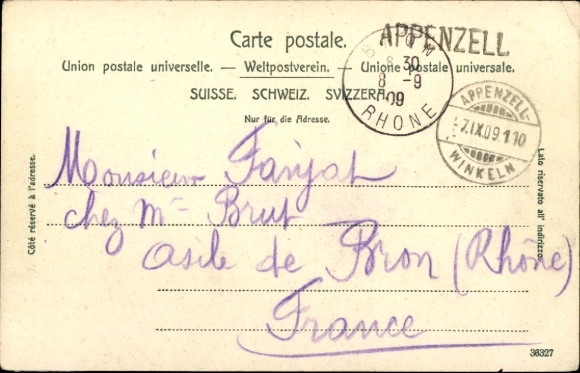 Carte postale.
APPENZELL
Union postale universelle. — Weltpostverein. — Unione postale universale.
SUISSE. SCHWEIZ. SVIZZERA.
Nur für die Adresse.
BRON
6 30
8 -9
09
RHONE
APPENZELL-
7.IX.09.1 10
WINKELN
Côté réservé à l'adresse.
Lato riservato all' indirizzo.
Monsieur
chez Mme Brut
asile de Bron (Rhône)
France
36327